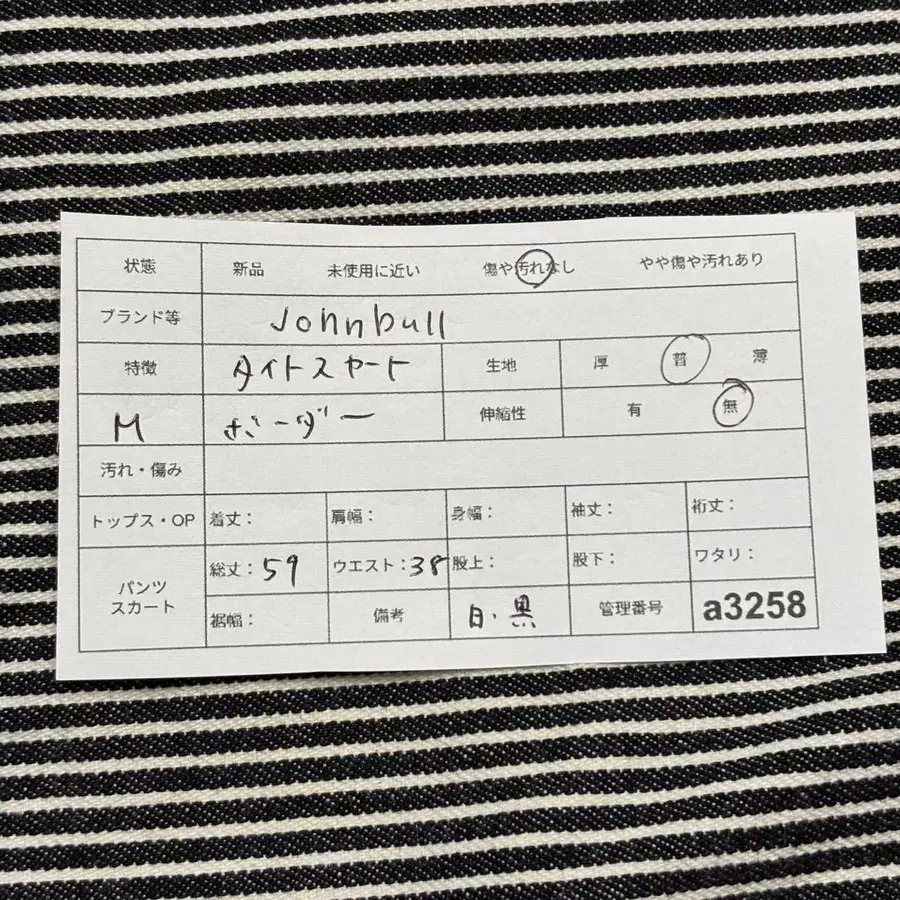 状態 新品 未使用に近い 傷や汚れなし やや傷や汚れあり
ブランド等 Johnbull
特徴 タイトスカート 生地 厚 普 薄
M ボーダー 伸縮性 有 無
汚れ・傷み
トップス・OP 着丈: 肩幅: 身幅: 袖丈: 裄丈:
パンツ スカート 総丈:59 ウエスト:38 股上: 股下: ワタリ:
裾幅: 備考 白・黒 管理番号 a3258